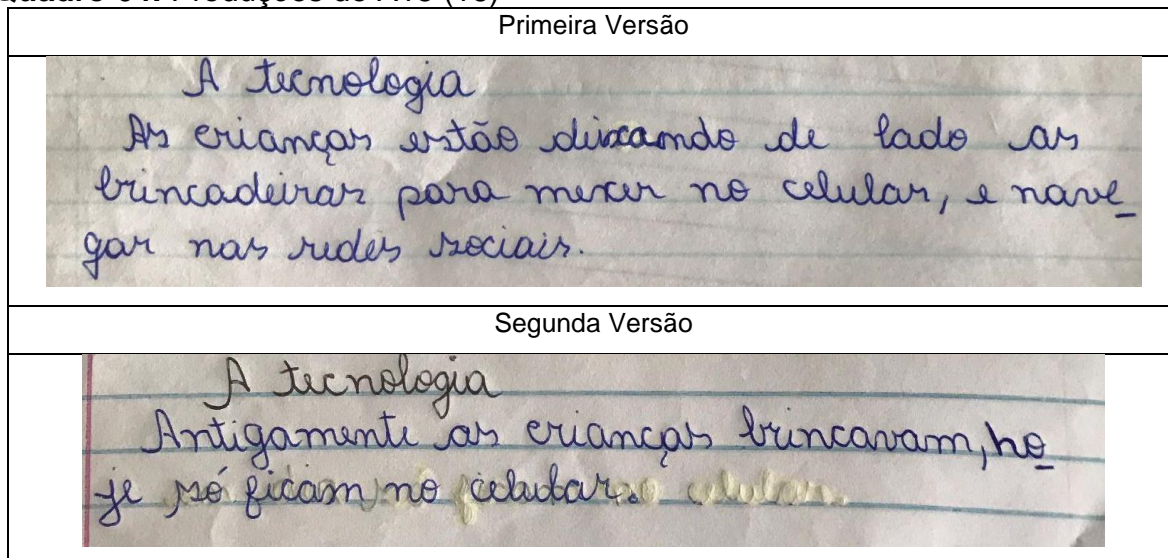 Primeira Versão
A tecnologia
As crianças estão deixando de lado as
brincadeiras para mexer no celular, e nave
gar nas redes sociais.
Segunda Versão
A tecnologia
Antigamente as crianças brincavam, ho
je só ficam no celular.